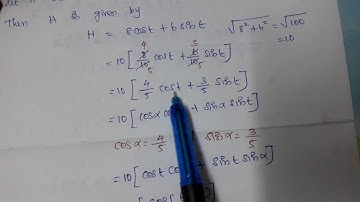 Then H is given by
H = 8cost + 6sint √8²+b² = √100
=10
= 10[ 8/10 cost + 6/10 sint ]
4 5 3 5
= 10[ 4/5 cost + 3/5 sint ]
= 10[ cosα co + sinα sint ]
cosα = 4/5 sinα = 3/5
= 10[ cost co + sint sinα ]